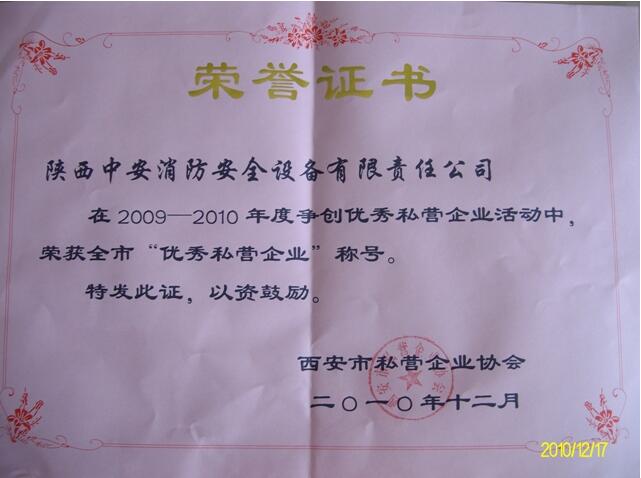 荣誉证书
陕西中安消防安全设备有限责任公司
在2009—2010年度争创优秀私营企业活动中，
荣获全市“优秀私营企业”称号。
特发此证，以资鼓励。
西安市私营企业协会
二〇一〇年十二月
2010/12/17